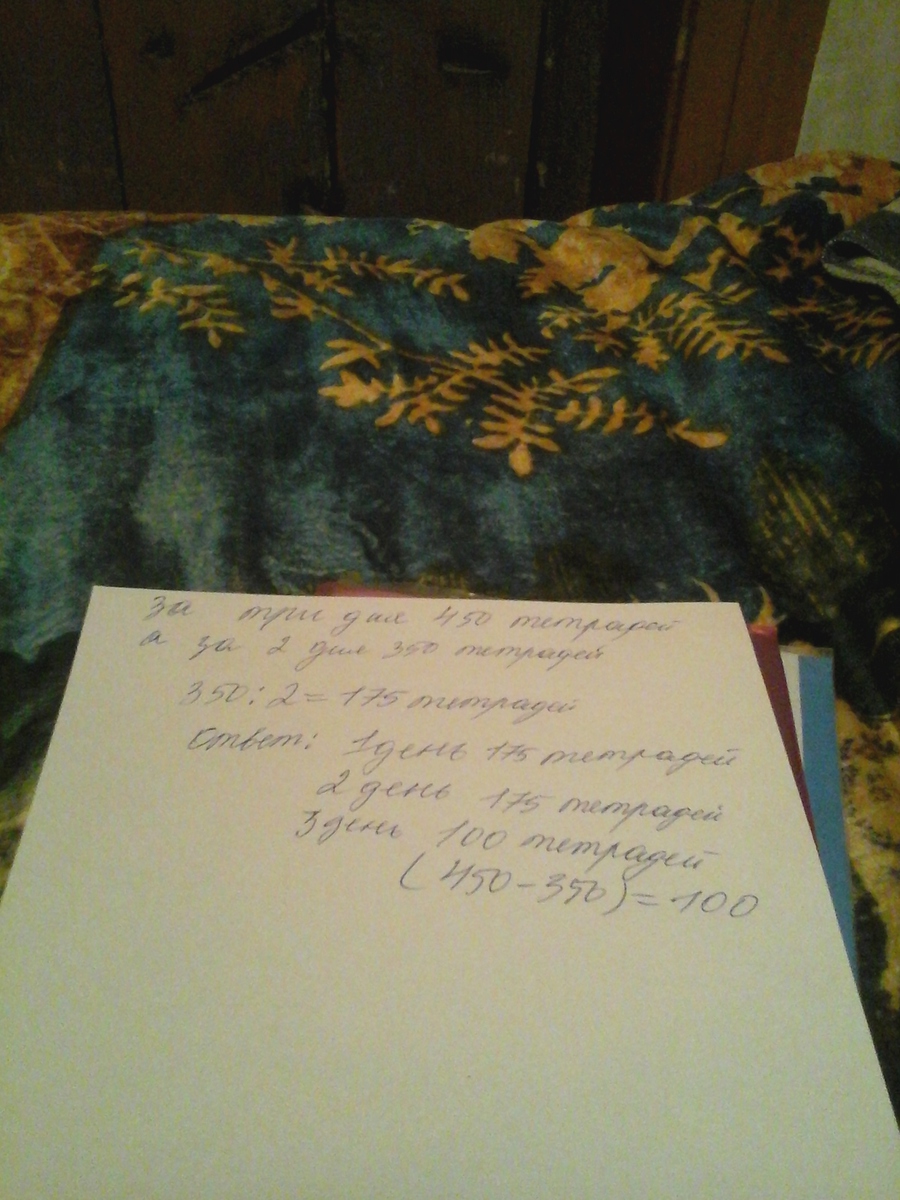 за три дня 450 тетрадей
а за 2 дня 350 тетрадей
350:2=175 тетрадей
Ответ: 1 день 175 тетрадей
2 день 175 тетрадей
3 день 100 тетрадей
(450-350)=100